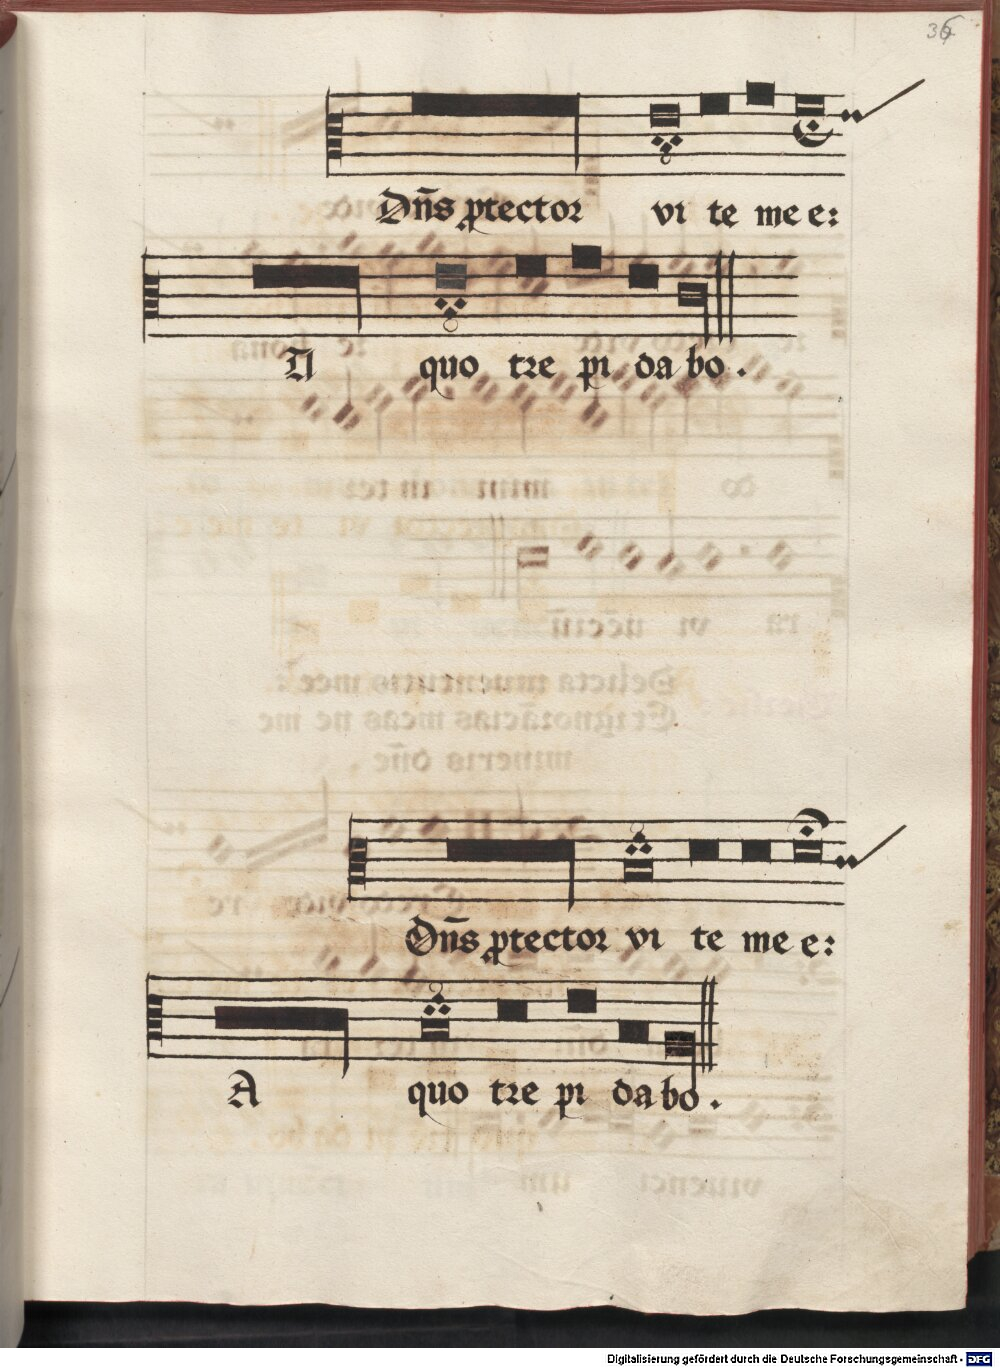 36
Dn̄s ꝓtector vi te me e:
A quo tre pi da bo .
Dn̄s ꝓtector vi te me e:
A quo tre pi da bo .
Digitalisierung gefördert durch die Deutsche Forschungsgemeinschaft - DFG